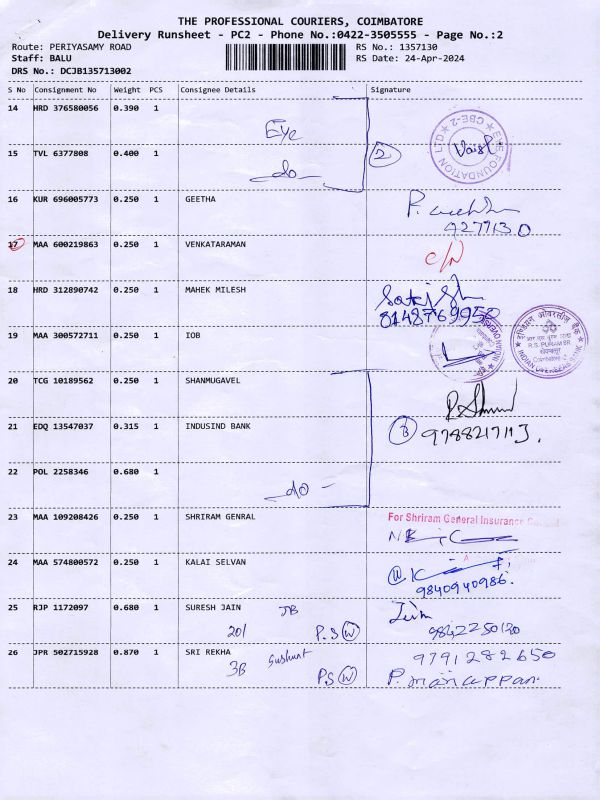 THE PROFESSIONAL COURIERS, COIMBATORE
Delivery Runsheet - PC2 - Phone No.:0422-3505555 - Page No.:2
Route: PERIYASAMY ROAD
Staff: BALU
DRS No.: DCJB135713002
RS No.: 1357130
RS Date: 24-Apr-2024
S No Consignment No Weight PCS Consignee Details Signature
14 HRD 376580056 0.390 1
Eye
15 TVL 6377808 0.400 1
-do-
2
EYE FOUNDATION LTD CBE-2
16 KUR 696005773 0.250 1 GEETHA
9277130
17 MAA 600219863 0.250 1 VENKATARAMAN
C/N
18 HRD 312890742 0.250 1 MAHEK MILESH
8148769958
19 MAA 300572711 0.250 1 IOB
इण्डियन ओवरसीज़ बैंक
R.S. PURAM BR
INDIAN OVERSEAS BANK
20 TCG 10189562 0.250 1 SHANMUGAVEL
21 EDQ 13547037 0.315 1 INDUSIND BANK
3
22 POL 2258346 0.680 1
-do-
23 MAA 109208426 0.250 1 SHRIRAM GENRAL
For Shriram General Insurance
24 MAA 574800572 0.250 1 KALAI SELVAN
9840940986.
25 RJP 1172097 0.680 1 SURESH JAIN JB
201 P.S W
9842250120
26 JPR 502715928 0.870 1 SRI REKHA
3B Sushunt
P.S W
9791282650
P. mariappan